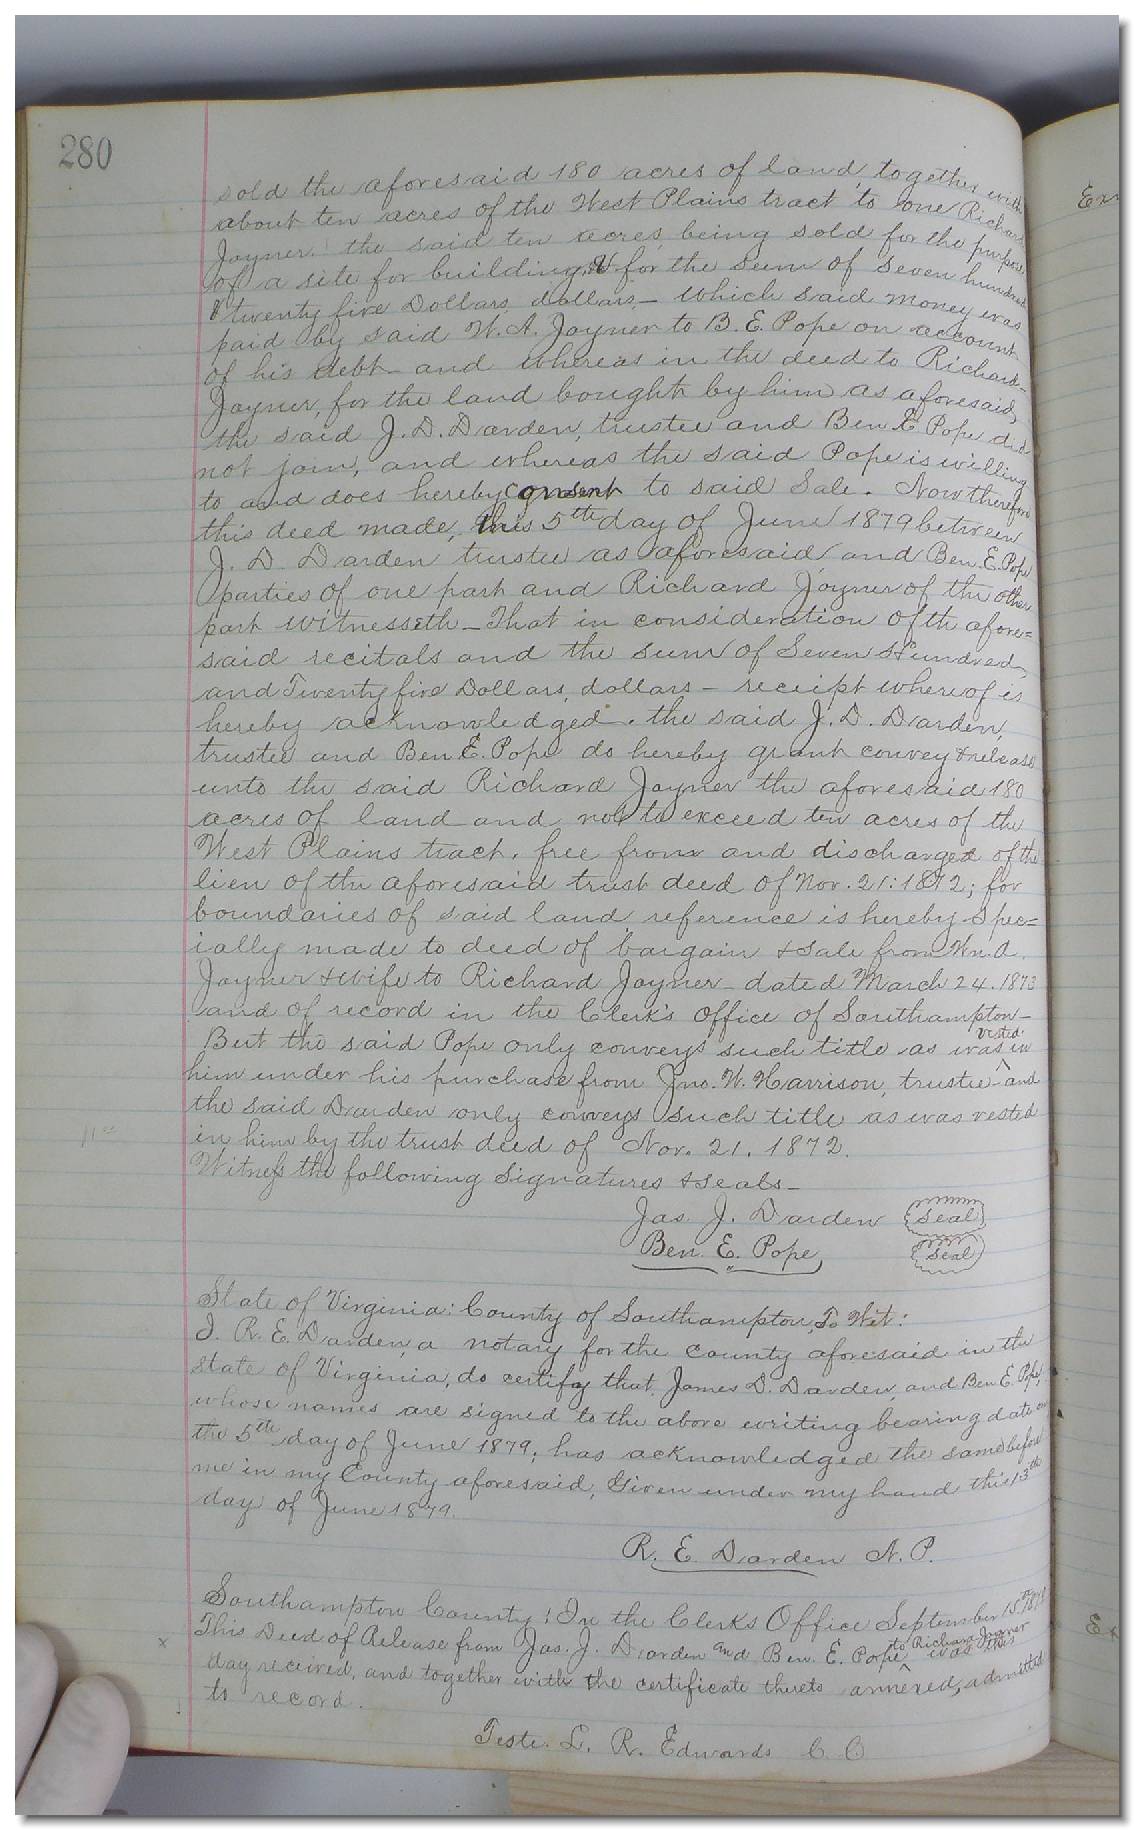 280
sold the aforesaid 180 acres of land, together with
about ten acres of the West Plains tract to one Richard
Joyner. the said ten acres being sold for the purpose
of a site for building, & for the sum of seven hundred
& twenty five Dollars, dollars — which said money was
paid by said W. A. Joyner to B. E. Pope on account
of his debt — and whereas in the deed to Richard
Joyner, for the land bought by him as aforesaid,
the said J. D. Darden, trustee and Ben E Pope did
not join, and whereas the said Pope is willing
to and does hereby consent to said Sale. Now therefore
this deed made, this 5th day of June 1879 between
J. D. Darden trustee as aforesaid and Ben. E. Pope
parties of one part and Richard Joyner of the other
part witnesseth — That in consideration of the afore=
said recitals and the sum of Seven Hundred
and Twenty five Dollars, dollars — receipt whereof is
hereby acknowledged. the said J. D. Darden,
trustee and Ben E. Pope do hereby grant convey & release
unto the said Richard Joyner the aforesaid 180
acres of land and not to exceed ten acres of the
West Plains tract, free from and discharged of the
lien of the aforesaid trust deed of Nov. 21: 1872; for
boundaries of said land reference is hereby spec=
ially made to deed of bargain & sale from Wm. A.
Joyner & wife to Richard Joyner — dated March 24. 1873
and of record in the Clerk's Office of Southampton —
But the said Pope only conveys such title as was vested in
him under his purchase from Jno. W. Harrison, trustee — and
the said Darden only conveys such title as was vested
in him by the trust deed of Nov. 21. 1872.
Witness the following signatures & seals —
Jas. J. Darden (Seal)
Ben. E. Pope (Seal)
State of Virginia: County of Southampton, To Wit:
I. R. E. Darden, a notary for the county aforesaid in the
state of Virginia, do certify that, James D. Darden, and Ben E. Pope,
whose names are signed to the above writing bearing date on
the 5th day of June 1879, has acknowledged the same before
me in my County aforesaid, Given under my hand this 13th
day of June 1879.
R. E. Darden N. P.
Southampton County: In the Clerks Office September 15th 1879
This Deed of Release from Jas. J. Darden and Ben. E. Pope to Richard Joyner was this
day received, and together with the certificate thereto annexed, admitted
to record.
Teste. L. R. Edwards C. C